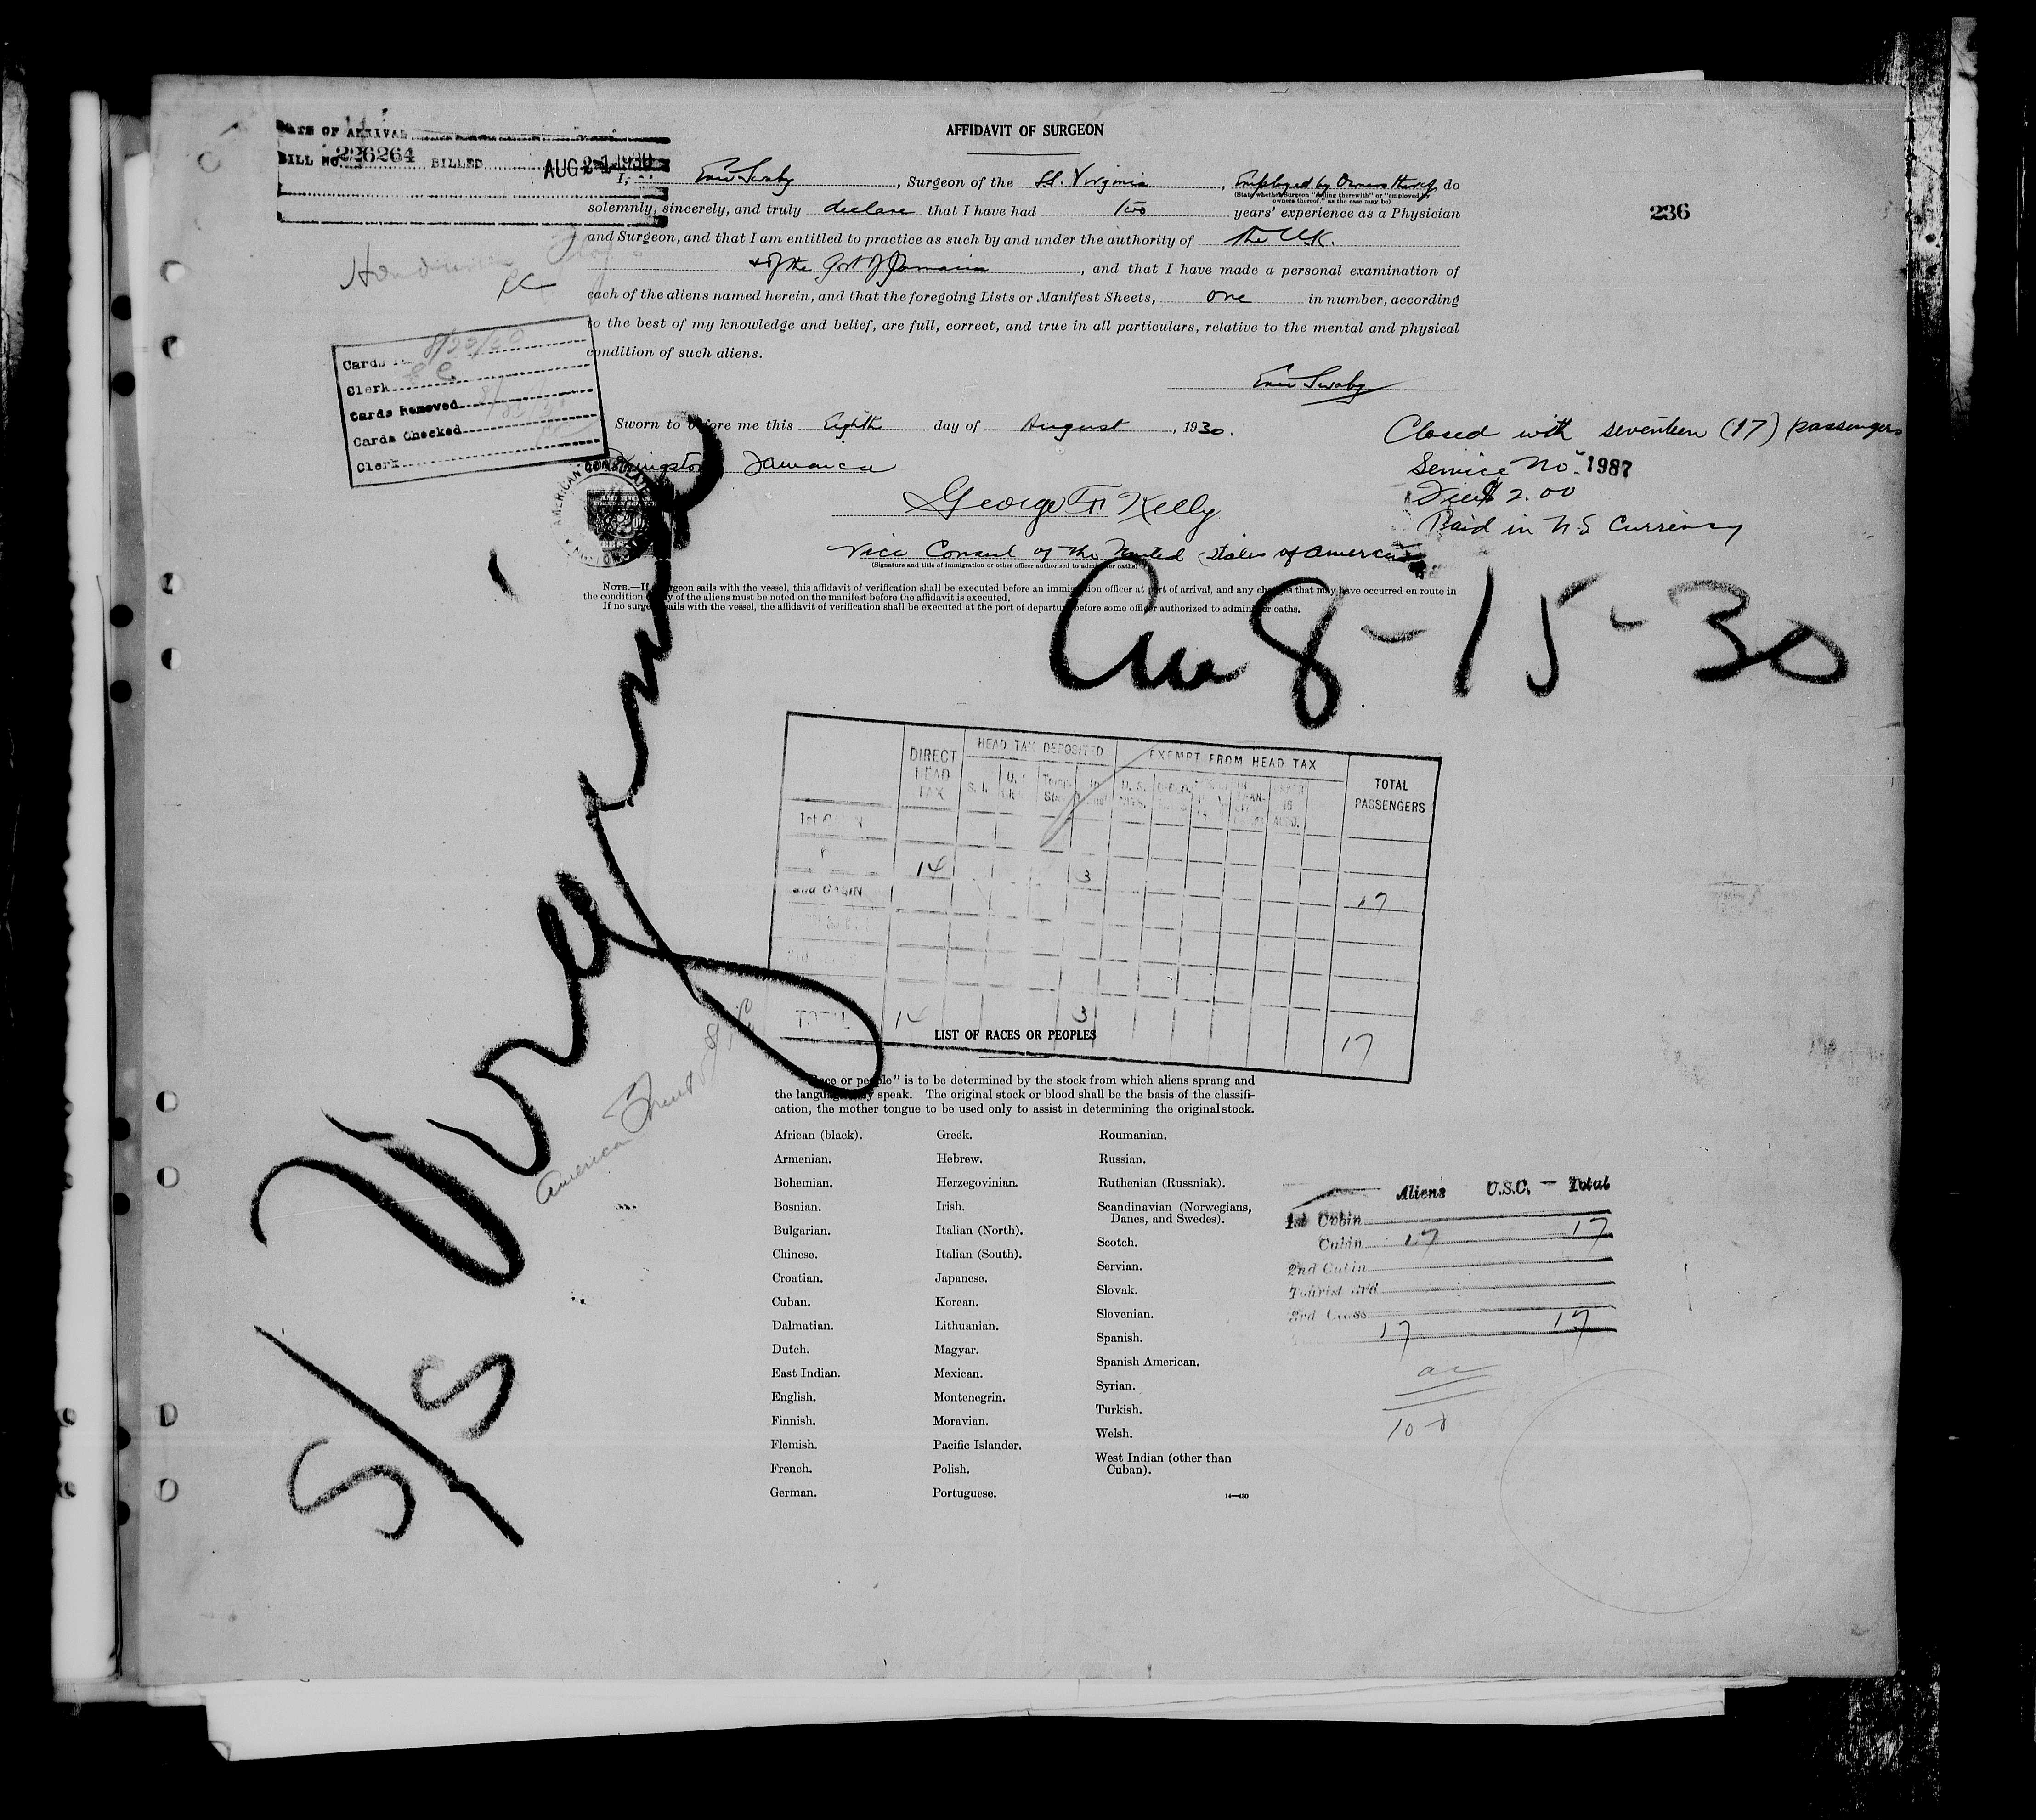 DATE OF ARRIVAL
BILL NO. 226264 BILLED AUG 21 1930
AFFIDAVIT OF SURGEON
236
I, Swaby, Surgeon of the SS. Virginia, Employed by Owners thereof, do
(State whether surgeon "sailing therewith" or "employed by
owners thereof," as the case may be)
solemnly, sincerely, and truly declare that I have had two years' experience as a Physician
and Surgeon, and that I am entitled to practice as such by and under the authority of the U.K.
+ of the Govt of Jamaica, and that I have made a personal examination of
each of the aliens named herein, and that the foregoing Lists or Manifest Sheets, one in number, according
to the best of my knowledge and belief, are full, correct, and true in all particulars, relative to the mental and physical
condition of such aliens.
Swaby
Cards
Clerk
Cards Removed
Cards Checked
Clerk
Sworn to before me this Eighth day of August, 1930.
Kingston Jamaica
George F. Kelly
Vice Consul of the United States of America
(Signature and title of immigration or other officer authorized to administer oaths)
Closed with seventeen (17) passengers
Service No. 1987
Fee $ 2.00
Paid in U.S Currency
AMERICAN CONSULATE
NOTE.—If surgeon sails with the vessel, this affidavit of verification shall be executed before an immigration officer at port of arrival, and any changes that may have occurred en route in
the condition of any of the aliens must be noted on the manifest before the affidavit is executed.
If no surgeon sails with the vessel, the affidavit of verification shall be executed at the port of departure before some officer authorized to administer oaths.
8-15-30
S/S Virginia
DIRECT HEAD TAX
HEAD TAX DEPOSITED
EXEMPT FROM HEAD TAX
TOTAL PASSENGERS
1st CABIN
14 3 17
2nd CABIN
TOTAL 14 3 17
LIST OF RACES OR PEOPLES
"Race or people" is to be determined by the stock from which aliens sprang and
the language they speak. The original stock or blood shall be the basis of the classifi-
cation, the mother tongue to be used only to assist in determining the original stock.
African (black).
Armenian.
Bohemian.
Bosnian.
Bulgarian.
Chinese.
Croatian.
Cuban.
Dalmatian.
Dutch.
East Indian.
English.
Finnish.
Flemish.
French.
German.
Greek.
Hebrew.
Herzegovinian.
Irish.
Italian (North).
Italian (South).
Japanese.
Korean.
Lithuanian.
Magyar.
Mexican.
Montenegrin.
Moravian.
Pacific Islander.
Polish.
Portuguese.
Roumanian.
Russian.
Ruthenian (Russniak).
Scandinavian (Norwegians,
Danes, and Swedes).
Scotch.
Servian.
Slovak.
Slovenian.
Spanish.
Spanish American.
Syrian.
Turkish.
Welsh.
West Indian (other than
Cuban).
14—430
Aliens U.S.C. — Total
1st Cabin
Cabin 17 17
2nd Cabin
Tourist 3rd
3rd Class
17 17